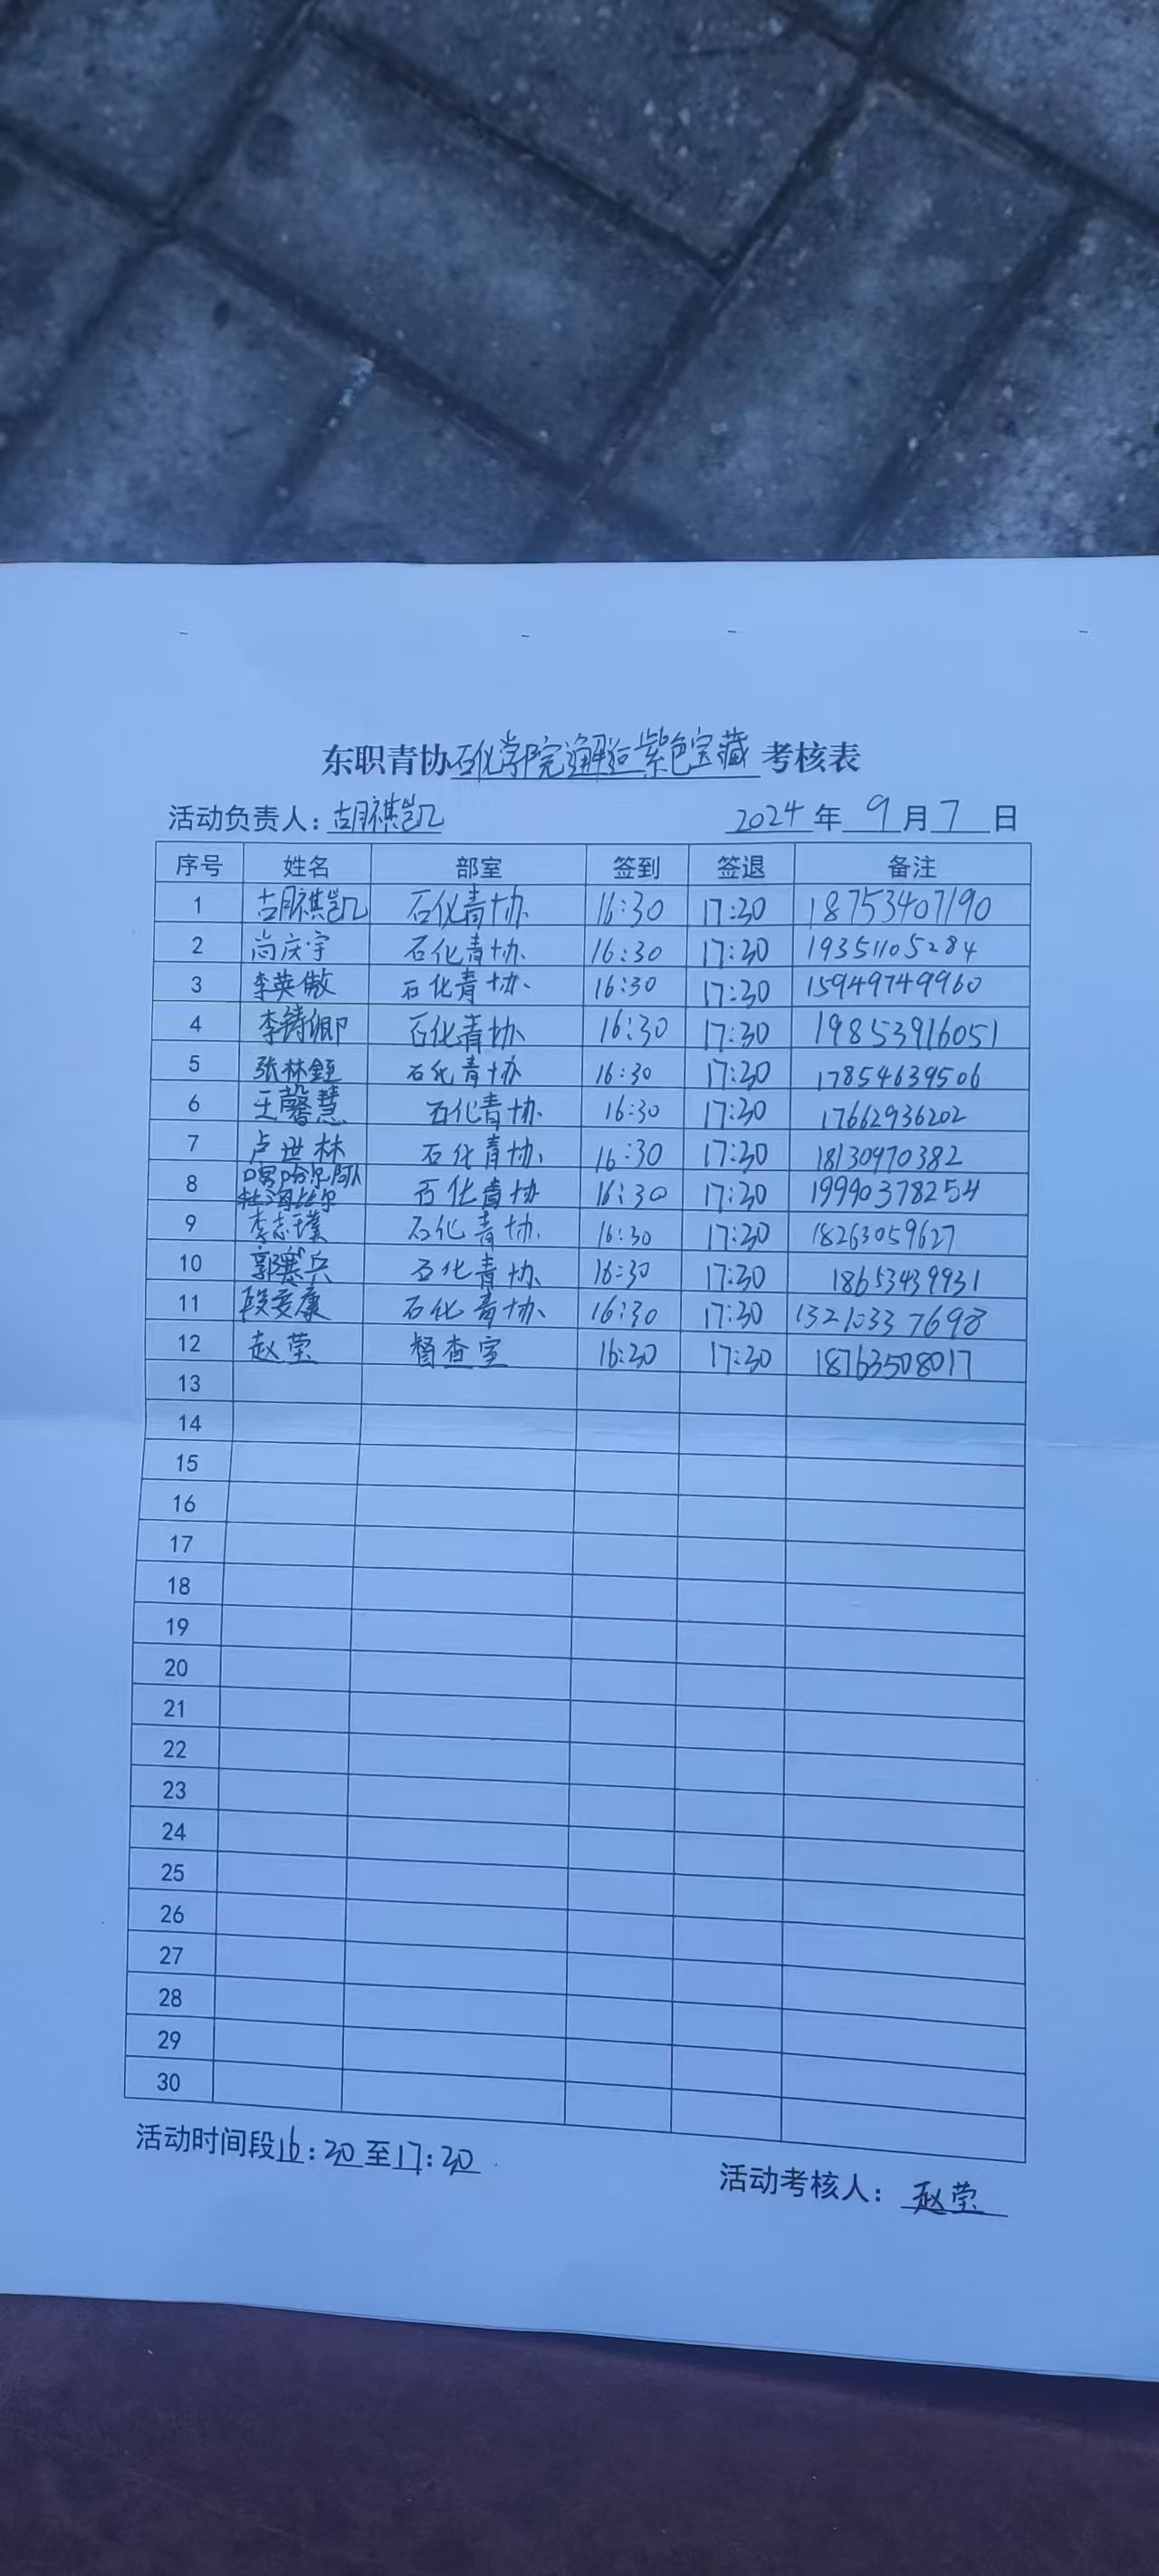 东职青协石化学院邂逅紫色宝藏考核表
活动负责人：胡祺凯 2024年9月7日
序号 姓名 部室 签到 签退 备注
1 胡祺凯 石化青协 16:30 17:30 18753407190
2 尚庆宇 石化青协 16:30 17:30 19351105284
3 李英傲 石化青协 16:30 17:30 15949749960
4 李铸卿 石化青协 16:30 17:30 19853916051
5 张林 石化青协 16:30 17:30 17854639506
6 王馨慧 石化青协 16:30 17:30 17662936202
7 卢世林 石化青协 16:30 17:30 18130970382
8 石化青协 16:30 17:30 19990378254
9 李志璞 石化青协 16:30 17:30 18263059627
10 郭赛兵 石化青协 16:30 17:30 18653439931
11 段奕康 石化青协 16:30 17:30 13210337698
12 赵莹 督查室 16:30 17:30 18763508017
13
14
15
16
17
18
19
20
21
22
23
24
25
26
27
28
29
30
活动时间段16:30至17:30
活动考核人：赵莹